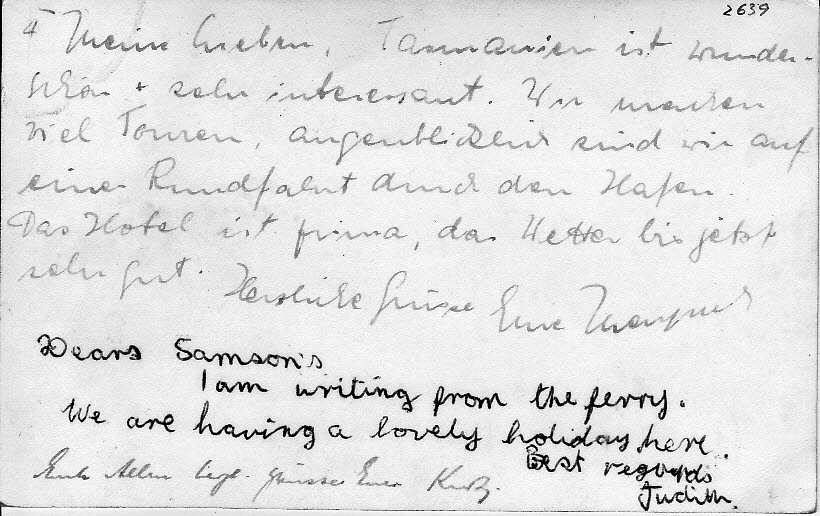 2639
4 Meine Lieben, Tasmanien ist wunder-
schön + sehr interessant. Wir machen
viel Touren, augenblicklich sind wir auf
einer Rundfahrt durch den Hafen.
Das Hotel ist prima, das Wetter bis jetzt
sehr gut.
Herzliche Grüsse Eure
Dears Samson's
I am writing from the ferry.
We are having a lovely holiday here.
Best regards
Judith.
Euch Allen herzl. Grüsse Euer